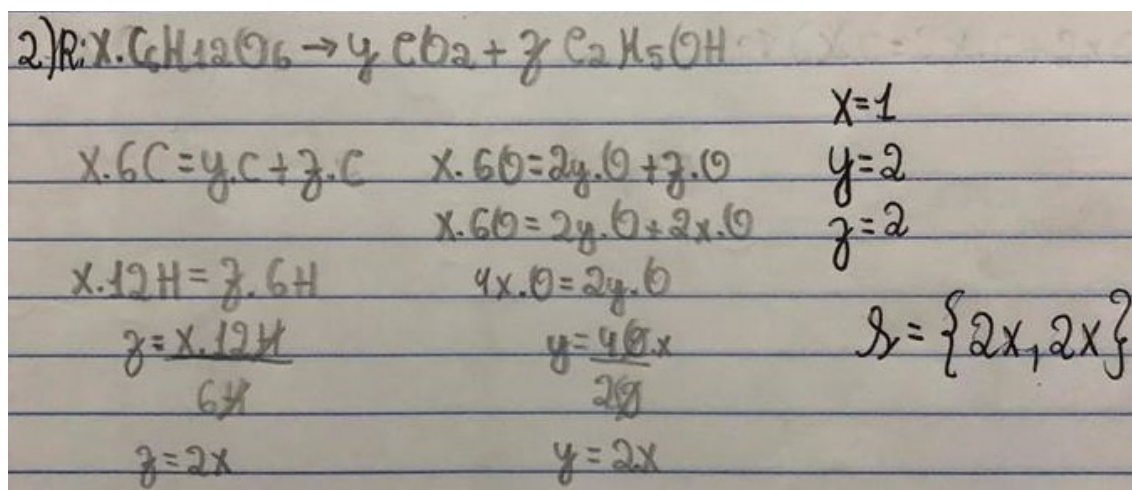 2)R: X.C6H12O6 → y CO2 + z C2H5OH
X.6C = y.C + z.C
X.12H = z.6H
z = X.12H
6H
z = 2x
X.6O = 2y.O + z.O
X.6O = 2y.O + 2x.O
4x.O = 2y.O
y = 4O.x
2O
y = 2x
X=1
y=2
z=2
S = {2x, 2x}